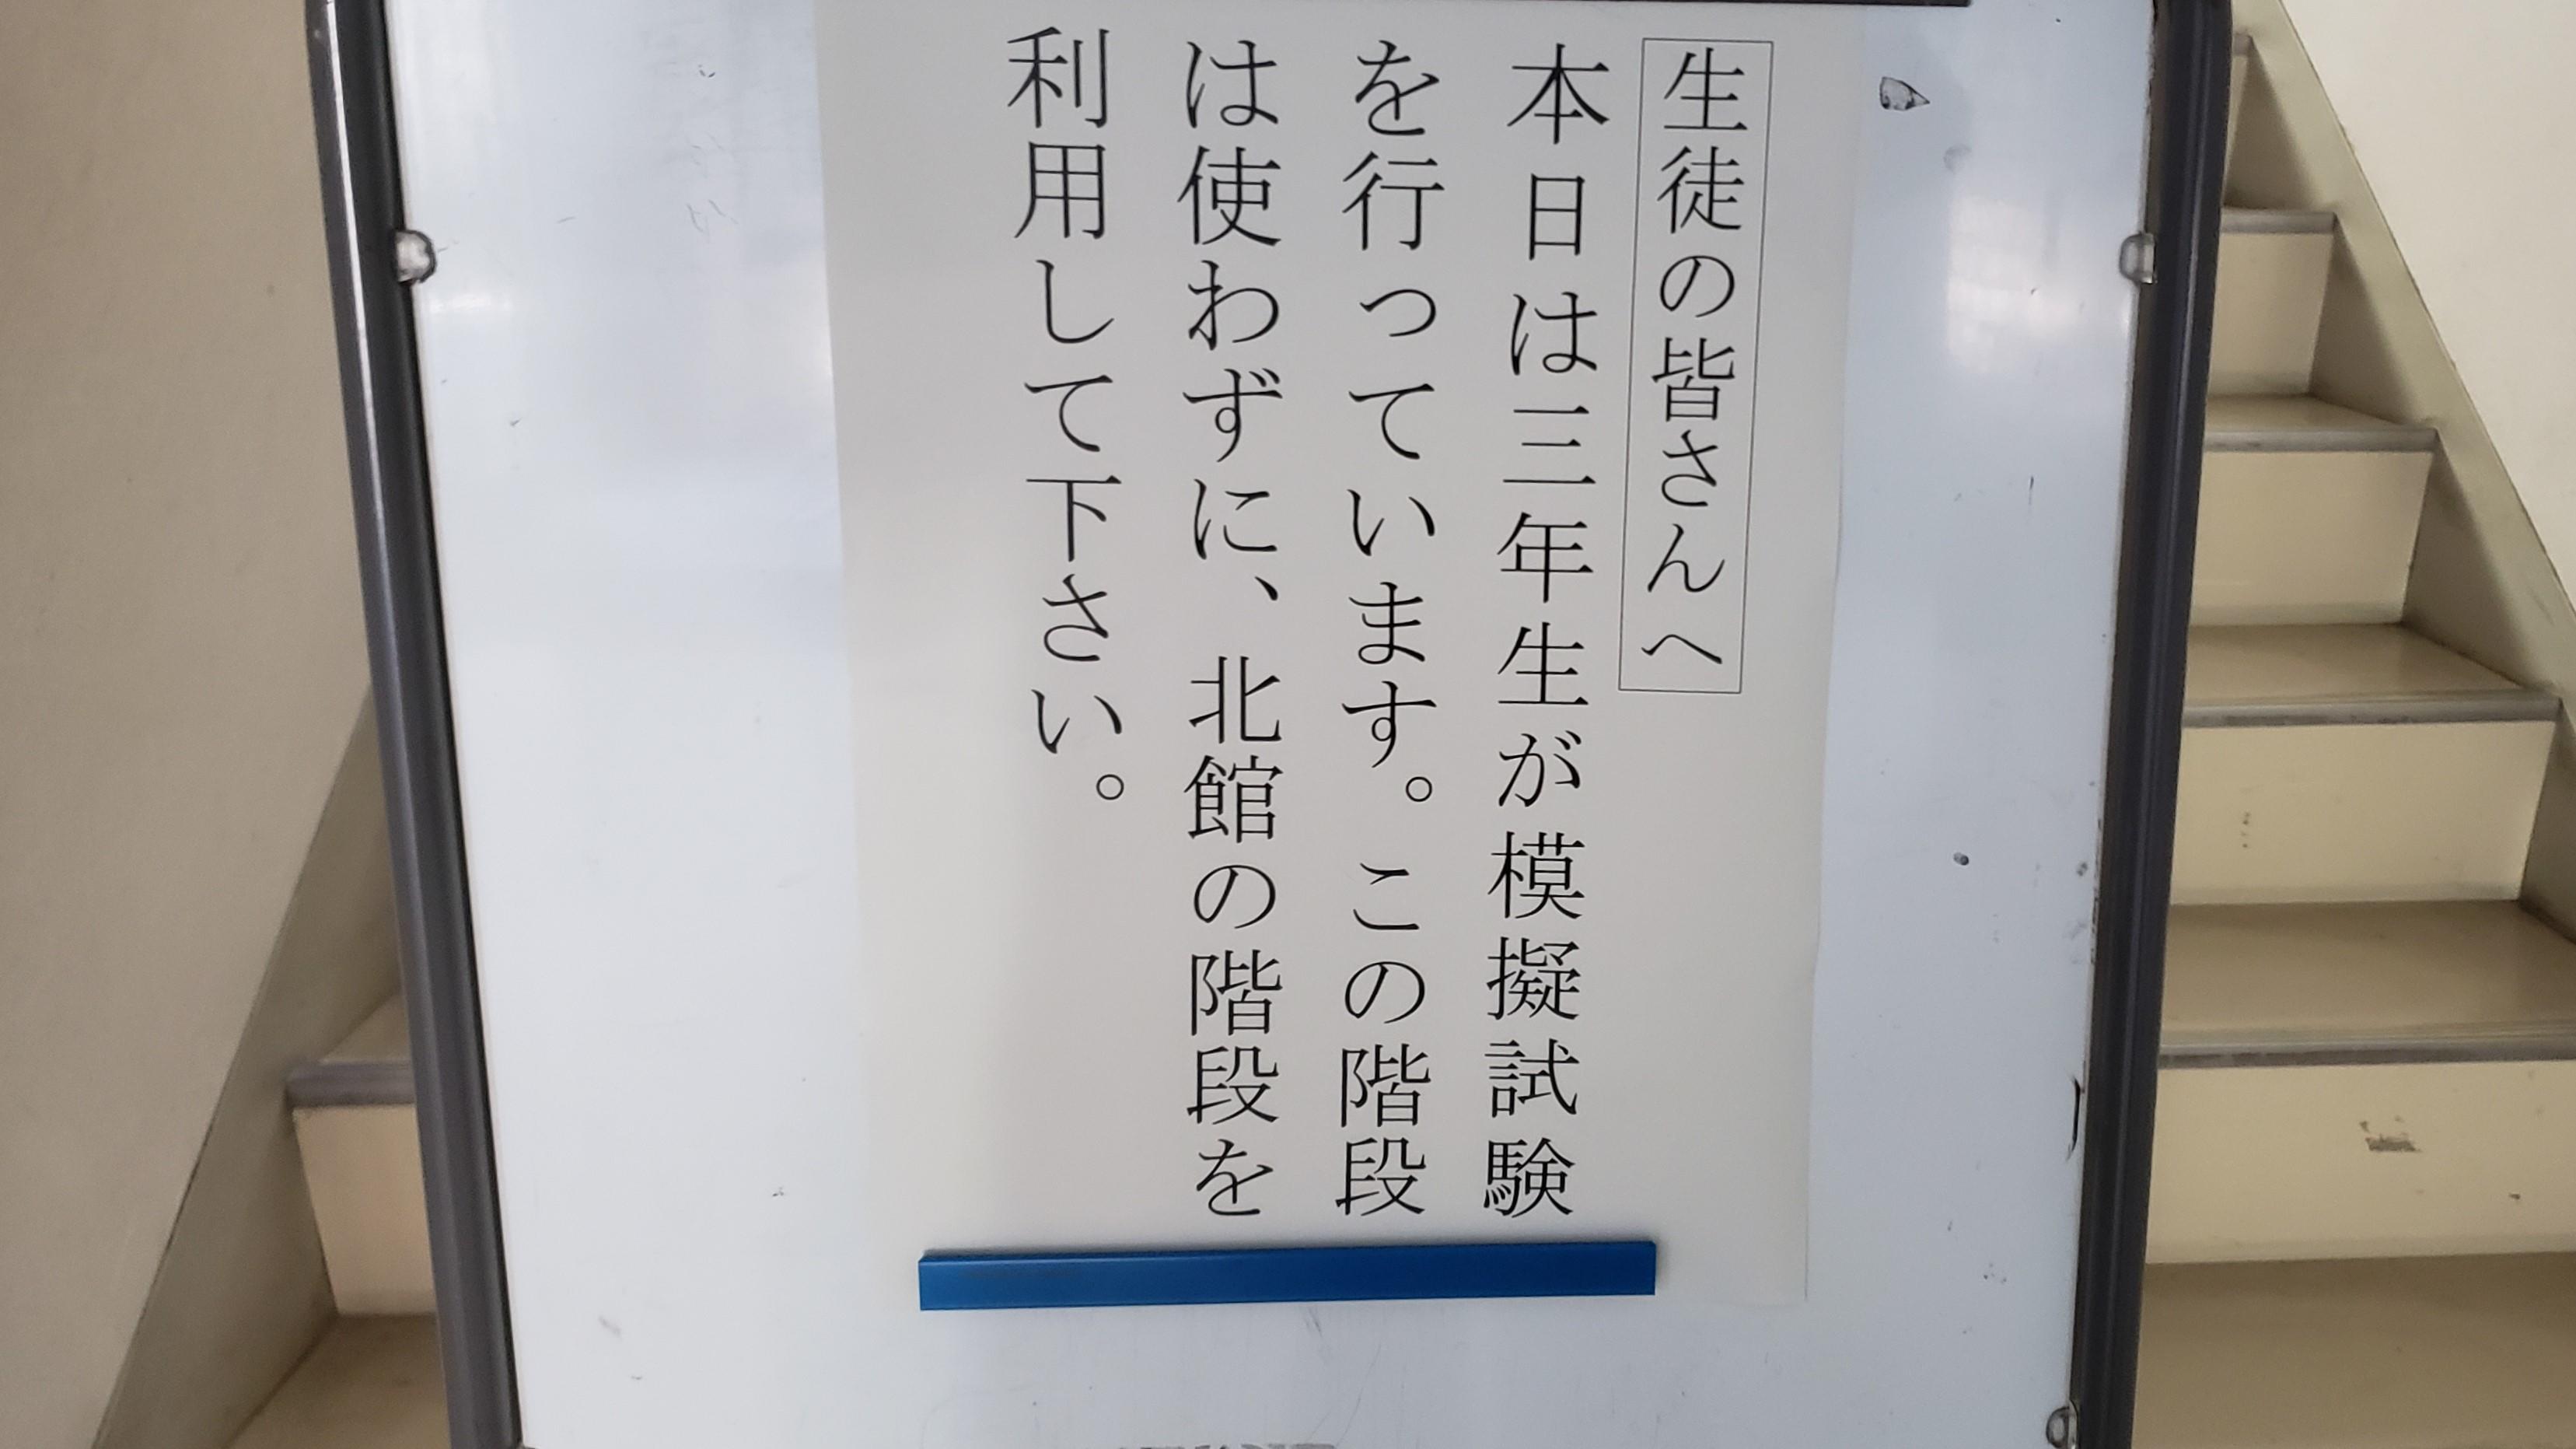 生徒の皆さんへ
本日は三年生が模擬試験
を行っています。この階段
は使わずに、北館の階段を
利用して下さい。